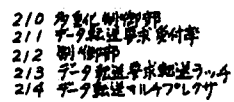 210 多重化制御部
211 データ転送要求受付部
212 制御部
213 データ転送要求転送ラッチ
214 データ転送マルチプレクサ